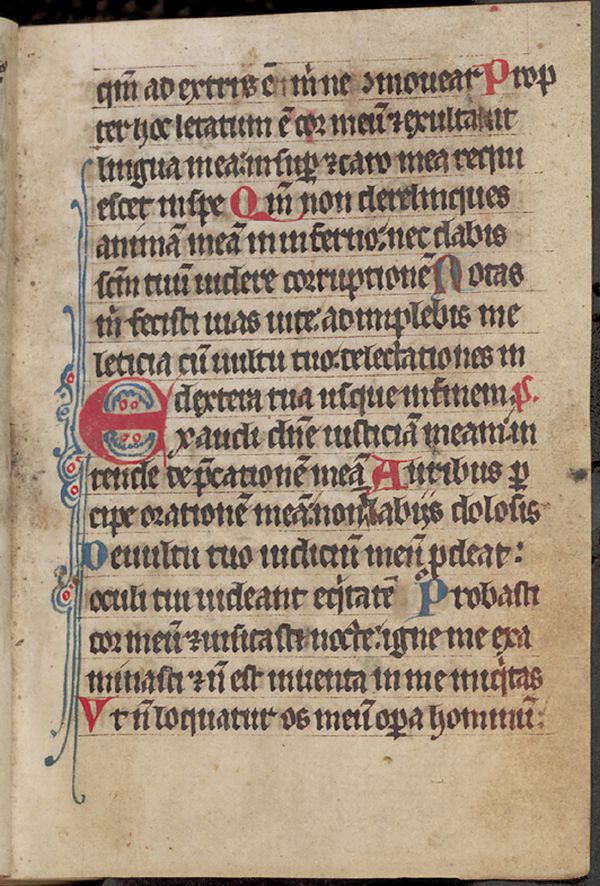 qm̄ ad extris ē m̄ ne ɔmouear Prop
ter hoc letatum ē cor meū ⁊ exultauit
lingua mea: insuꝑ ⁊ caro mea requi
escet in spe Qm̄ non derelinques
animā meā in inferno: nec dabis
scm̄ tuū uidere corruptionē Notas
m̄ fecisti uias uite: adimplebis me
leticia cū uultu tuo: delectationes in
dextera tua usque in finem. p̄s.
Exaudi dn̄e iusticiā meam: in
tende dep̄cationē meā Auribus ꝑ
cipe orationē meā: non labijs dolosis
De uultu tuo iudiciū meū ꝓdeat:
oculi tui uideant eq̇tatē Probasti
cor meū ⁊ uisitasti nocte: igne me exa
minasti ⁊ n̄ est inuenta in me iniq̇tas
Vt n̄ loquatur os meū oꝑa hominū: